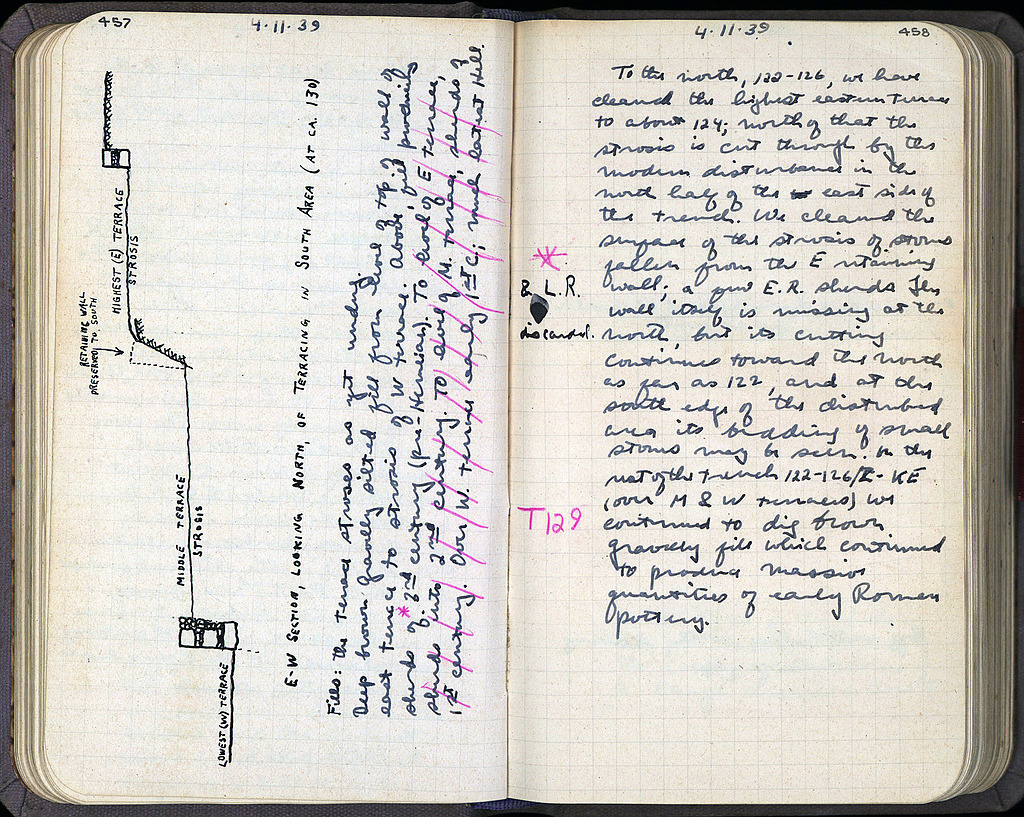 457
4·11·39
HIGHEST (E) TERRACE
STROSIS
RETAINING WALL
PRESERVED TO SOUTH
MIDDLE TERRACE
STROSIS
LOWEST (W) TERRACE
E-W SECTION, LOOKING NORTH, OF TERRACING IN SOUTH AREA (AT CA. 130)
Fills: the terrace stroses as yet undug.
Deep brown gravelly silted fill from level of top of walls of
east terrace to strosis of W terrace. Above, fill producing
sherds of * 3rd century (pre-Herulian). To level of E terrace,
sherds into 2nd century. To level of M. terrace, sherds of
1st century. Over W. terrace early 1st C.; much latest Hell.
4·11·39
458
To the north, 122-126, we have
cleaned the highest eastern terrace
to about 124; north of that the
strosis is cut through by the
modern disturbance in the
north half of the east side of
the trench. We cleaned the
surface of the strosis of stones
fallen from the E retaining
wall; a few E.R. sherds. The
wall itself is missing at the
north, but its cutting
continues toward the north
as far as 122, and at the
south edge of the disturbed
area its bedding of small
stones may be seen. In the
rest of the trench 122-126/ - KE
(over M & W terraces) we
continued to dig brown
gravelly fill which continued
to produce massive
quantities of early Roman
pottery.
*
& L.R.
discarded.
T129